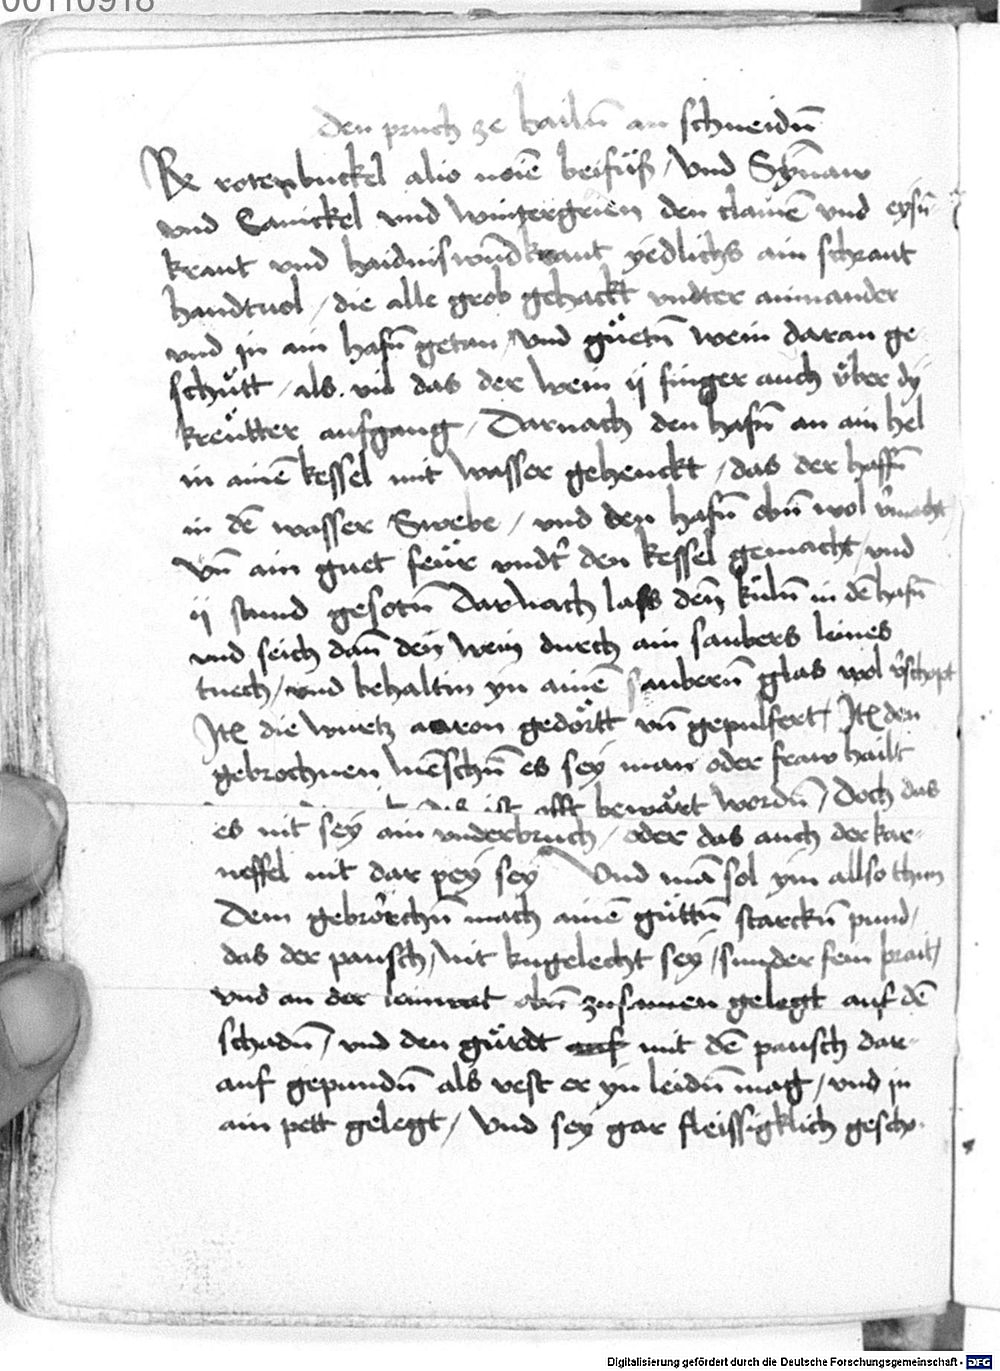 00110918
den pruch ze hailn̄ an schneidn̄
Rx rotenbuckel alio noīe beifüß / und Synnaw
vnd Sanickel vnd wintergrien den clainē vnd eysn̄
kraut vnd haidnisswūdkraut yedlichs ain schraut
handtuol / die alle grob gehackt vndter ainnander
vnd in ain hafn̄ getan / vnd güetn̄ wein daran ge
schütt / als vil das der wein ij finger auch über dy
kreütter aufgang / Darnach den hafn̄ an ain hel
in ainē kessel mit wasser gehenckt / das der haffn̄
in dē wasser Swebe / vnd den hafn̄ obn̄ wol v̄macht
vn̄ ain guet feür vndt̄ den kessel gemacht / vnd
ij stund gesotn̄ Darnach lass den küln̄ in dē hafn̄
vnd seich dan̄ den wein durch ain saubers leines
tuech / vnd behaltin yn ainē saubern̄ glas wol v̄schopt
Itē die wurtz aaron gedörtt vn̄ gepulfert / Itē den
gebrochnen mēschn̄ es sey man oder fraw hailt
ist offt bewärt wordn̄ / Doch das
es nit sey ain vnderbruch / oder das auch der kar-
neffel nit dar pey sey Vnd mā sol ym allso thun
Dem gebrochn̄ mach ainē güttn̄ starckn̄ pund /
das der pausch / nit kugelecht sey / sunder fein prait /
vnd an der leinwat obn̄ zusamen gelegt auf dē
schadn̄ / vnd den gürdt mit dē pausch dar-
auf gepundn̄ als vest er yn leidn̄ mag / vnd in
ain pett gelegt / Vnd sey gar fleissigklich gescho-
Digitalisierung gefördert durch die Deutsche Forschungsgemeinschaft - DFG